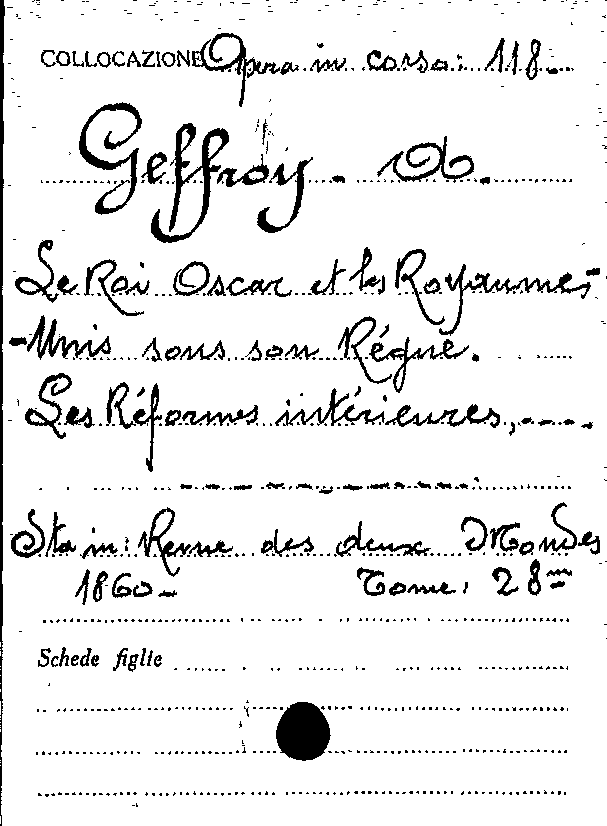 COLLOCAZIONE Opera in corso: 118-
Geffroy - A.
Le Roi Oscar et les Royaumes-
-Unis sons son Régne.
Les Réformes intérieures,----
Sta in: Revue des deux Mondes
1860- Tome: 28m
Schede figlie